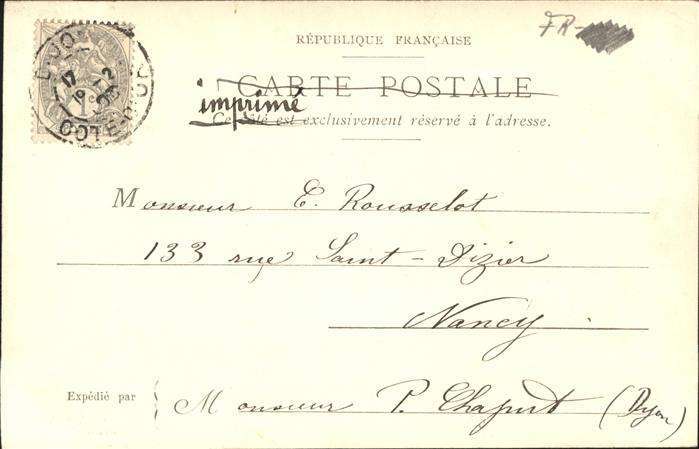 FR-
RÉPUBLIQUE FRANÇAISE
CARTE POSTALE
imprimé
Ce côté est exclusivement réservé à l'adresse.
DIJON
17
COTE-D'OR
Monsieur E. Rousselot
133 rue Saint-Dizier
Nancy
Expédié par Monsieur P. Chaput (Dijon)